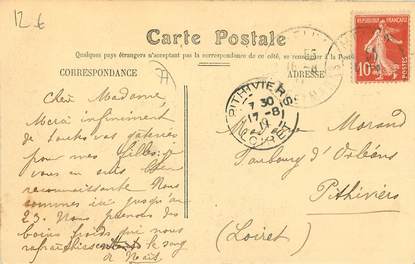 12 €
Carte Postale
Quelques pays étrangers n'acceptant pas la correspondance de ce côté, se renseigner à la Poste
CORRESPONDANCE
ADRESSE
REPUBLIQUE FRANÇAISE
10
POSTES
PITHIVIERS
7 30
17-8
11
LOIRET
Chère Madame,
Merci infiniment
de toutes vos gâteries
pour mes filles, je
vous en suis bien
reconnaissante. Nous
sommes ici jusqu'au
23. Nous prenons des
bains froids qui nous
le sang
Morand
Faubourg d'Orléans
Pithiviers
(Loiret)